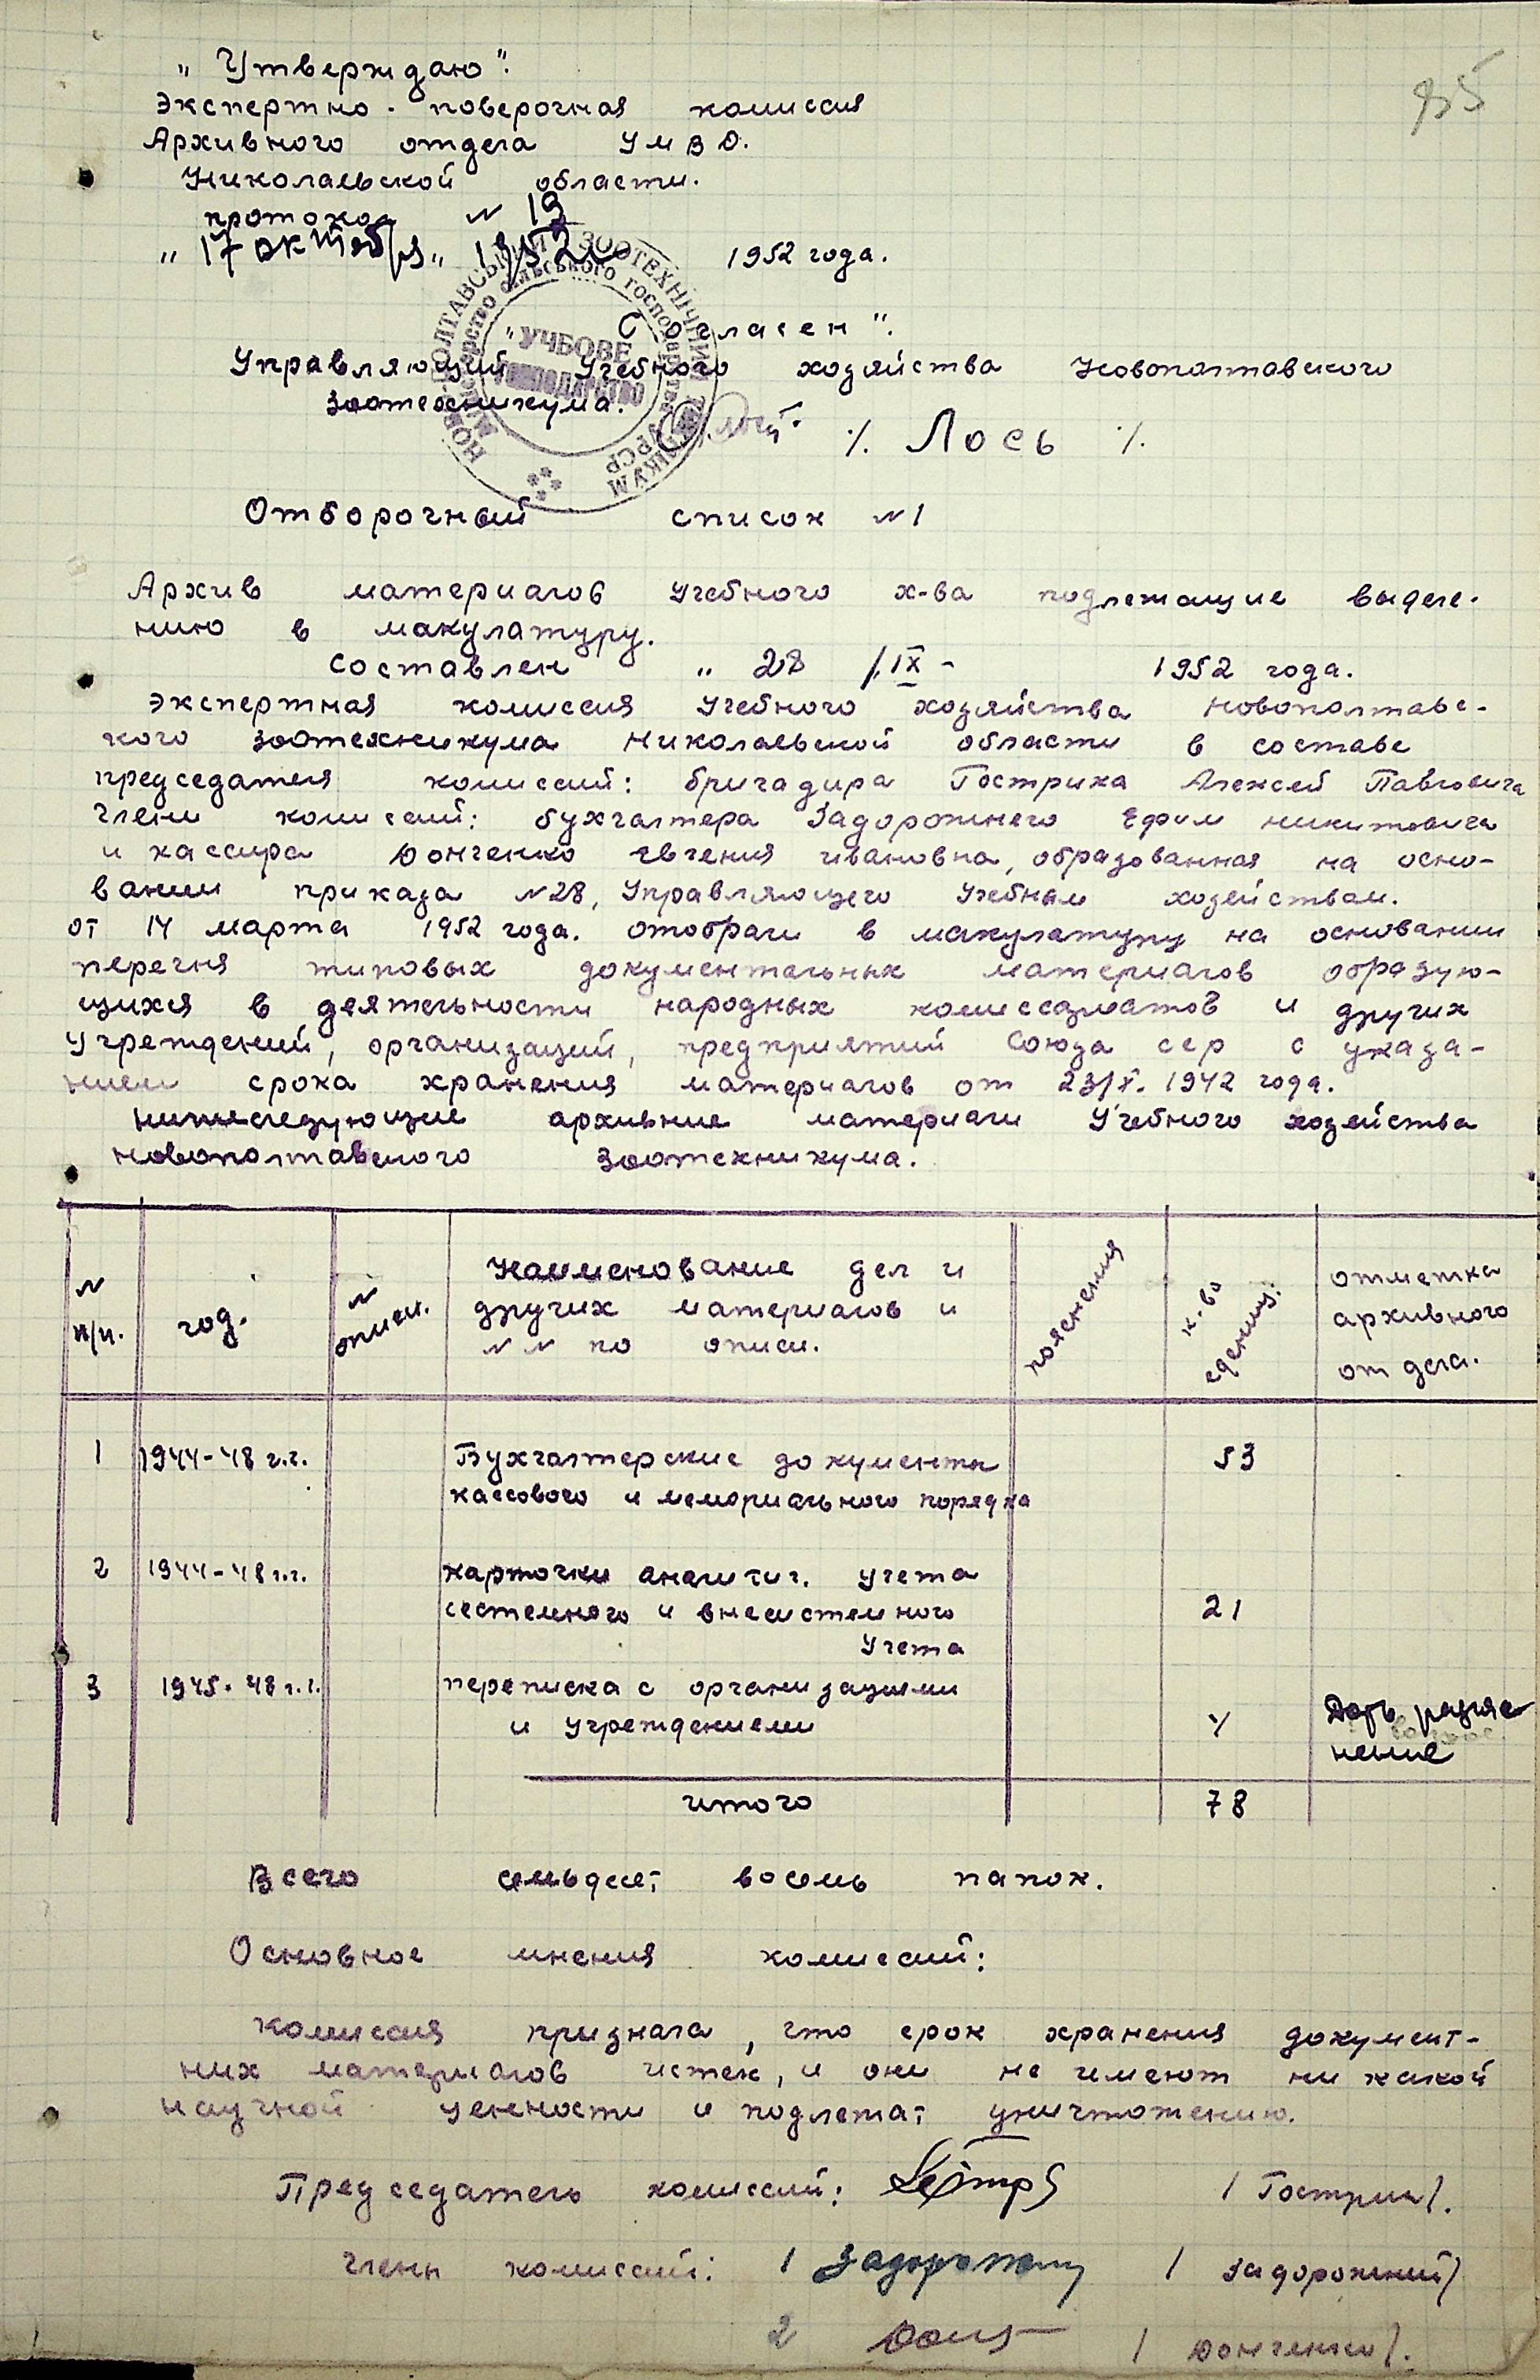 85
„Утверждаю".
Экспертно-поверочная комиссия
Архивного отдела УМВД.
Николаевской области.
протокол № 19
„17 октября" 1952 1952 года.
„Согласен".
Управляющий Учебного хозяйства Новополтавского
зоотехникума. /. Лось /.
НОВОПОЛТАВСЬКИЙ ЗООТЕХНІЧНИЙ ТЕХНІКУМ
Міністерство сільського господарства УРСР
УЧБОВЕ
ГОСПОДАРСТВО
Отборочный список №1
Архив материалов Учебного х-ва подлежащие выделе-
нию в макулатуру.
Составлен „28 /.IX - 1952 года.
Экспертная комиссия Учебного хозяйства Новополтавс-
кого зоотехникума Николаевской области в составе
председателя комиссий: бригадира Гострика Алексей Павловича
члени комиссий: бухгалтера Задорожнего Ефим Никитовича
и кассира Донченко Евгения Ивановна, образованная на осно-
вании приказа №28, Управляющего Учебным хозяйством.
от 14 марта 1952 года. отобрали в макулатуру на основании
перечня типовых документальных материалов образую-
щихся в деятельности народных комиссариатов и других
Учреждений, организаций, предприятий Союза сср с указа-
нием срока хранения материалов от 23/X. 1942 года.
нижеследующие архивние материали Учебного хозяйства
Новополтавского зоотехникума.
№ п/п. год. № описи. Наименование дел и других материалов и №№ по описи. пояснения к-во единиц. отметка архивного отдела.
1 1944-48 г.г. Бухгалтерские документы 53
кассового и мемориального порядка
2 1944-48 г.г. карточки аналитич. учета
системного и внесистемного 21
Учета
3 1945-48 г.г. переписка с организациями
и Учреждениеми 4 Дать разяс
нение
итого 78
Всего семьдесят восемь папок.
Основное мнения комиссий:
комиссия признала, что срок хранения документ-
них материалов истек, и они не имеют ни какой
научной ценности и подлежат уничтожению.
Председатель комиссий: /Гострик/.
члени комиссий: 1 Задорожний / Задорожний/
2 / Донченко/.